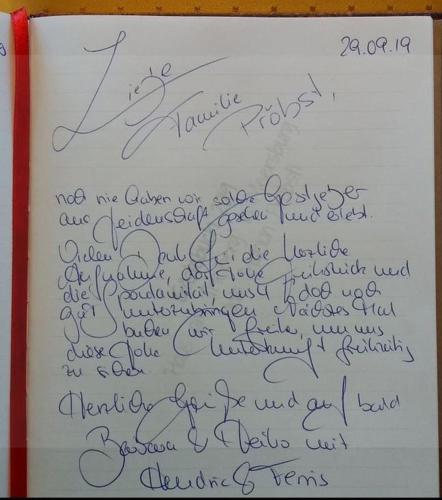 29.09.19
Liebe
Familie
Pröbst,
noch nie haben wir solche Gastgeber
aus Leidenschaft gesehen und erlebt.
Vielen Dank für die herzliche
Aufnahme, das tolle Frühstück und
die Spontanität, uns 4 doch noch
gut unterzubringen. Nächstes Mal
buchen wir früher, um uns
diese tolle Unterkunft frühzeitig
zu sichern.
Herzliche Grüße und auf bald
Barbara & Heiko mit
Hendric & Ferris